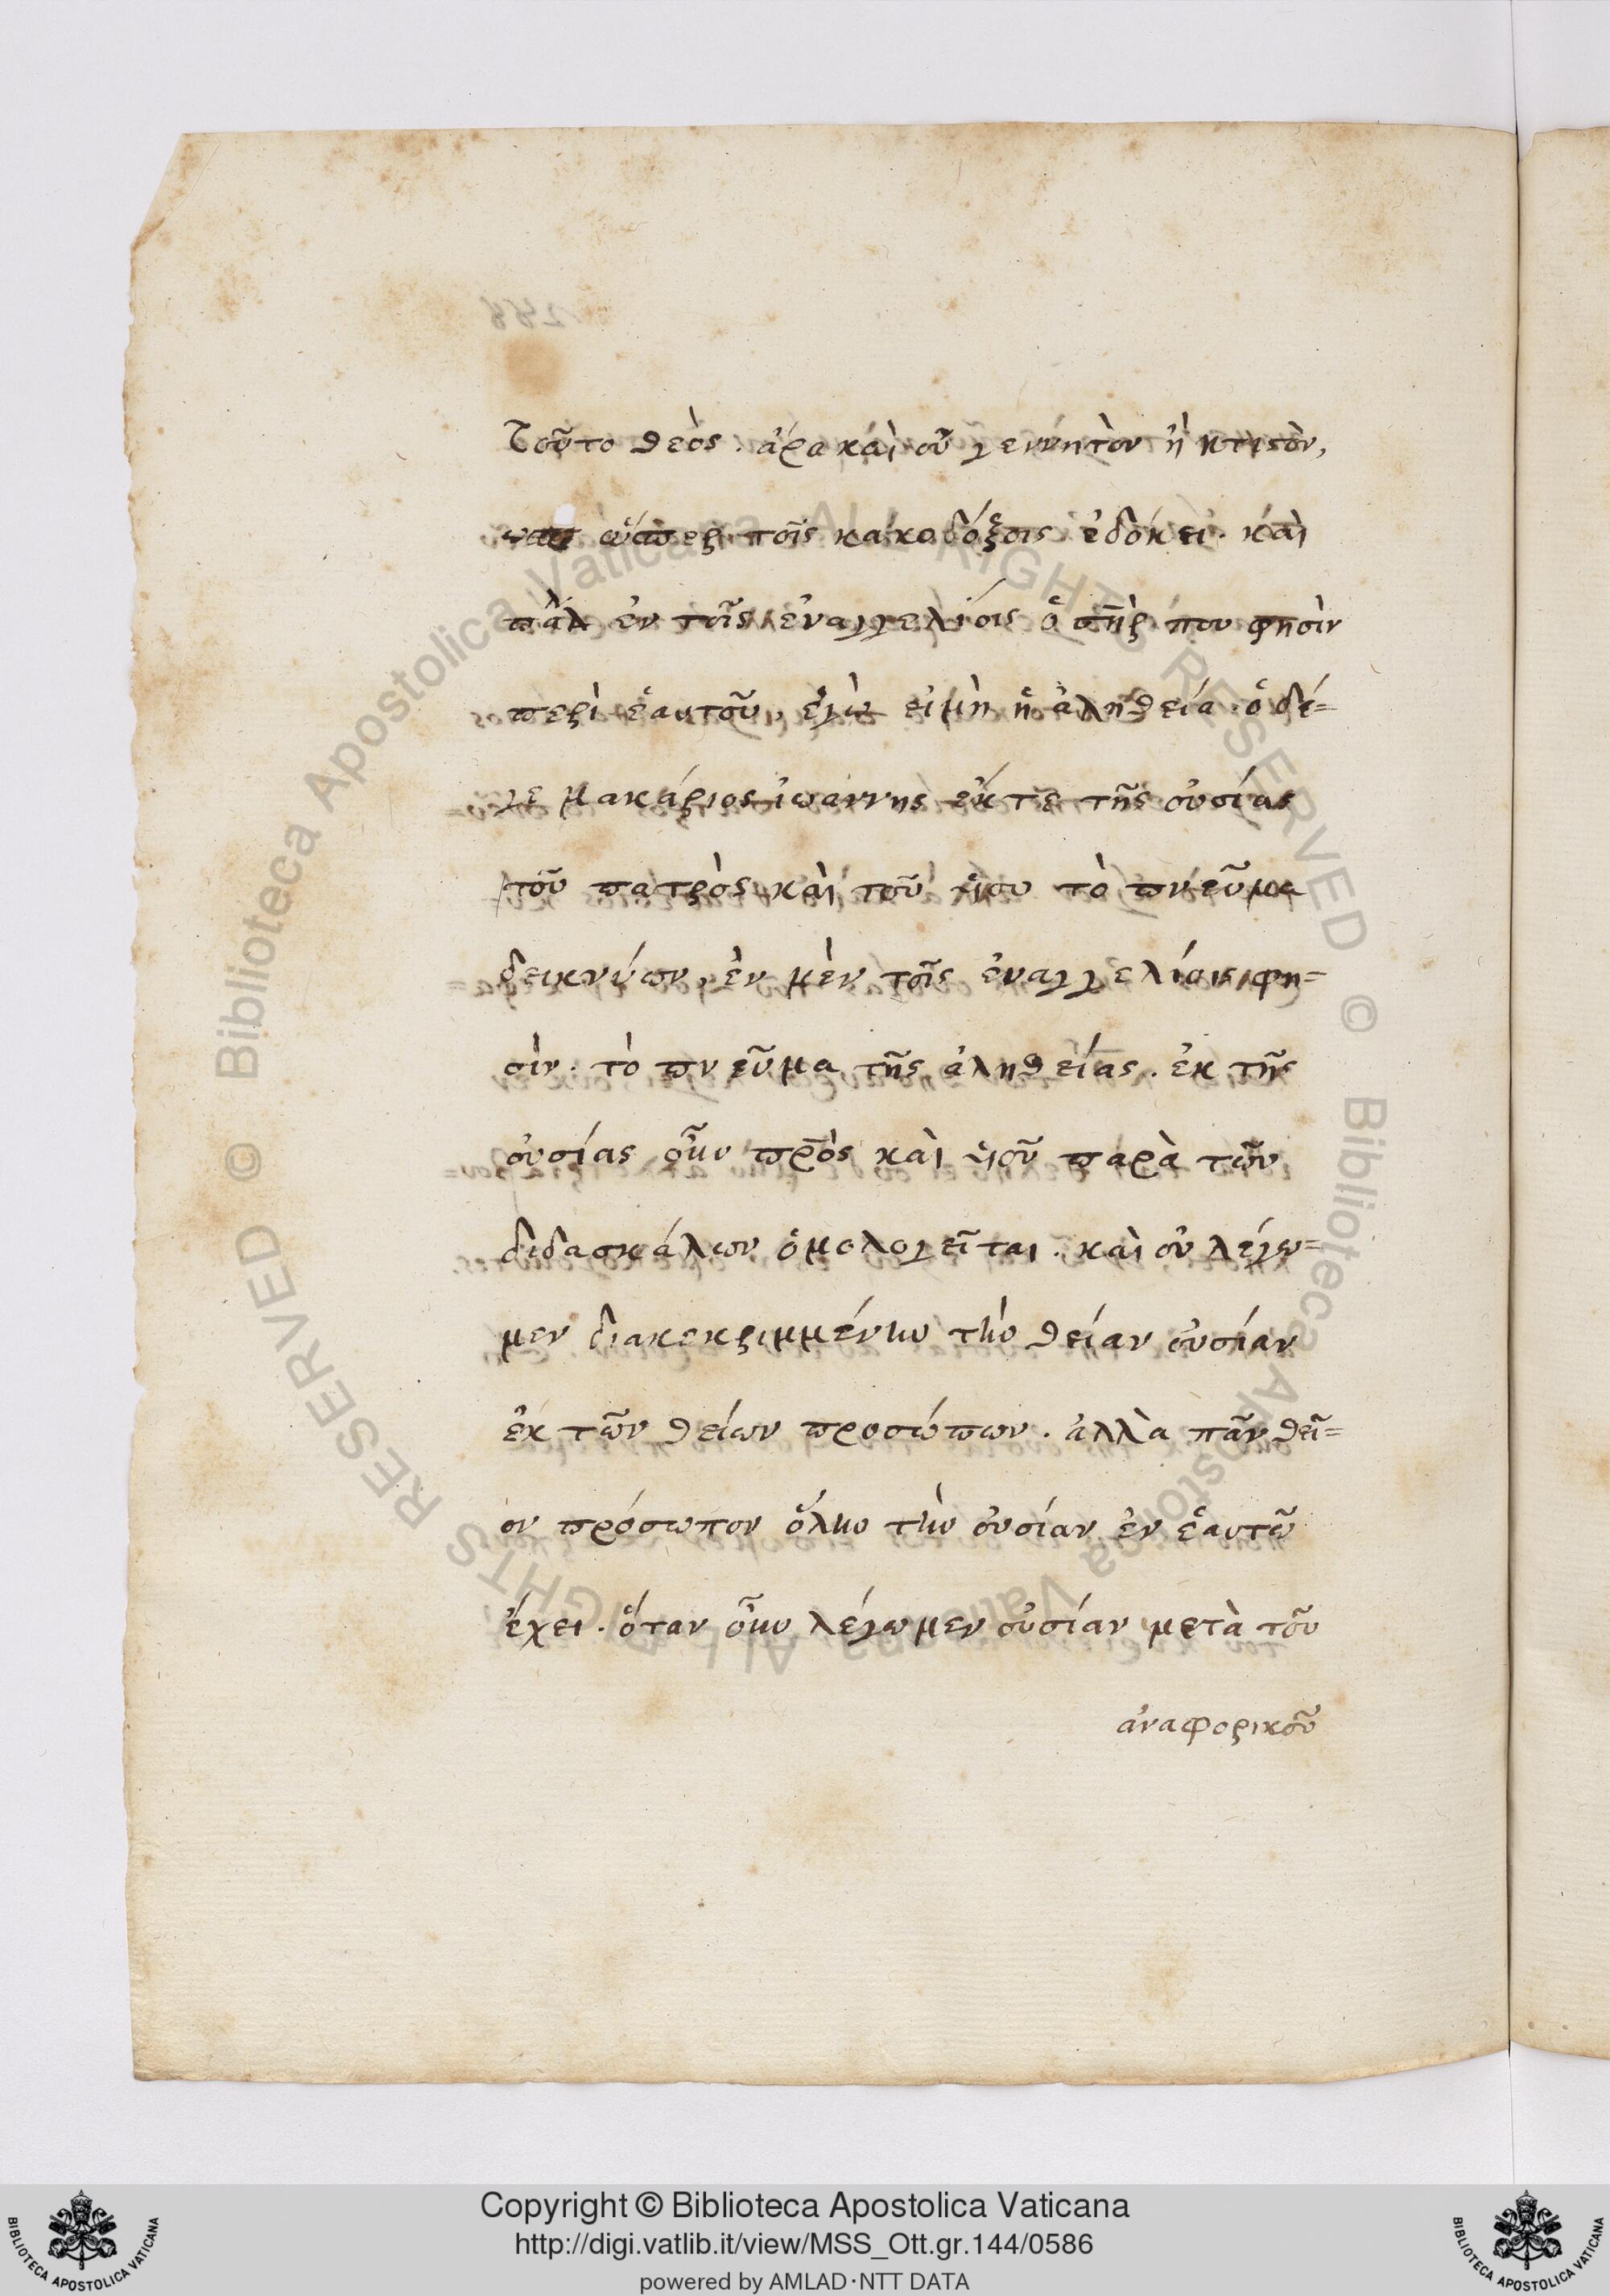 τοῦτο θεὸς. ἄρα καὶ οὐ γεννητὸν ἢ κτιστὸν,
ὥσπερ τοῖς κακοδόξοις ἐδόκει. καὶ
πάλ ἐν τοῖς ἐυαγγελίοις ὁ σηὶρ που φησὶν
περὶ ἑαυτοῦ, ἐγὼ εἰμὴ ἡ ἀληθεία. ὁ δέ=
γε μακάριος ἰωάννης ἔκτε τῆς οὐσίας
τοῦ πατρὸς καὶ τοῦ ὑιου τὸ πνεῦμα
δεικνύων, ἐν μὲν τοῖς ἐυαγγελίοις φη=
σὶν. τὸ πνεῦμα τῆς ἀληθείας. ἐκ τῆς
οὐσίας οὖν πρὸς καὶ ὑιοῦ παρὰ τῶν
διδασκάλων ὁμολογεῖται. καὶ οὐ λέγω=
μεν διακεκριμμένην τὴν θείαν οὐσίαν
ἐκ τῶν θείων προσώπων. ἀλλὰ πᾶν θεῖ=
ον πρόσωπον ὅλην τὴν οὐσίαν ἐν ἑαυτῶ
ἔχει. ὅταν οὖν λέγωμεν οὐσίαν μετὰ τοῦ
ἀναφορικοῦ
Copyright © Biblioteca Apostolica Vaticana
http://digi.vatlib.it/view/MSS_Ott.gr.144/0586
powered by AMLAD·NTT DATA
© Biblioteca Apostolica Vaticana ALL RIGHTS RESERVED
© Biblioteca Apostolica Vaticana ALL RIGHTS RESERVED
BIBLIOTECA APOSTOLICA VATICANA
BIBLIOTECA APOSTOLICA VATICANA